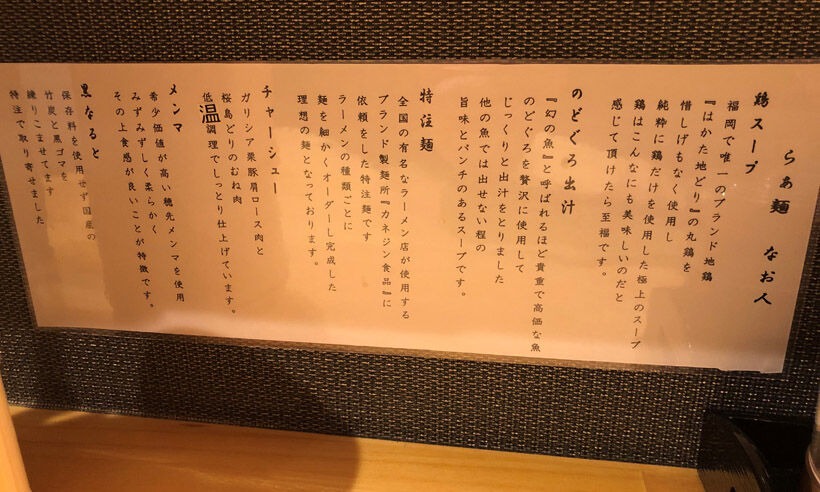 らぁ麺 なお人
鶏スープ
福岡で唯一のブランド地鶏
『はかた地どり』の丸鶏を
惜しげもなく使用し
純粋に鶏だけを使用した極上のスープ
鶏はこんなにも美味しいのだと
感じて頂けたら至福です。
のどぐろ出汁
『幻の魚』と呼ばれるほど貴重で高価な魚
のどぐろを贅沢に使用して
じっくりと出汁をとりました
他の魚では出せない程の
旨味とパンチのあるスープです。
特注麺
全国の有名なラーメン店が使用する
ブランド製麺所『カネジン食品』に
依頼をした特注麺です
ラーメンの種類ごとに
麺を細かくオーダーし完成した
理想の麺となっております。
チャーシュー
ガリシア栗豚肩ロース肉と
桜島どりのむね肉
低温調理でしっとり仕上げています。
メンマ
希少価値が高い穂先メンマを使用
みずみずしく柔らかく
その上食感が良いことが特徴です。
黒なると
保存料を使用せず国産の
竹炭と黒ゴマを
練りこませてます
特注で取り寄せました